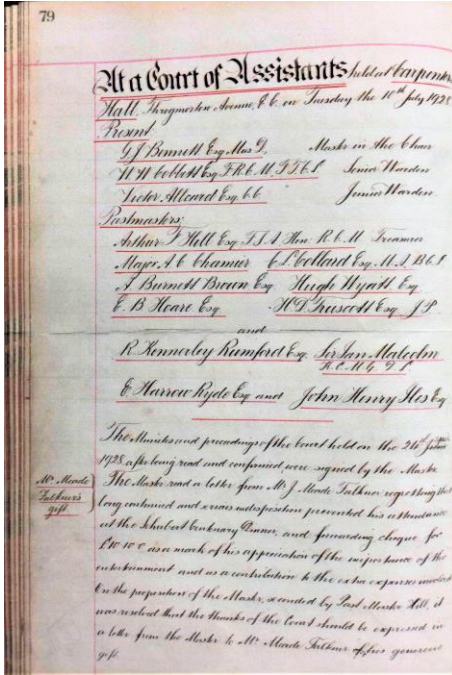 79
At a Court of Assistants held at Carpenters
Hall, Throgmorton Avenue, E.C. on Tuesday the 10th July 1928
Present:
G J Bennett Esq Mus D. Master in the Chair
W W Cobbett Esq F.R.C.M. Senior Warden
Victor Allcard Esq Junior Warden
Pastmasters:
Arthur F Hill Esq F.S.A. Hon: R.C.M Treasurer
Major A C Chamier C L Collard Esq. M.A. B.C.L
A Burnett Brown Esq Hugh Wyatt Esq
E. B Hoare Esq H D Truscott Esq J.P.
and
R Kennerley Rumford Esq. Sir Ian Malcolm
K.C.M.G. D.L
E Harrow Ryde Esq and John Henry Iles Esq
The Minutes and proceedings of the Court held on the 26th June
1928 after being read and confirmed, were signed by the Master
Mr. Meade
Falkner's
gift.
The Master read a letter from Mr J Meade Falkner regretting that
long continued and serious indisposition prevented his attendance
at the Schubert Centenary Dinner, and forwarding cheque for
£10 10 0 as a mark of his appreciation of the importance of the
entertainment and as a contribution to the extra expenses involved
On the proposition of the Master, seconded by Past Master Hill, it
was resolved that the thanks of the Court should be expressed in
a letter from the Master to Mr Meade Falkner for his generous
gift.